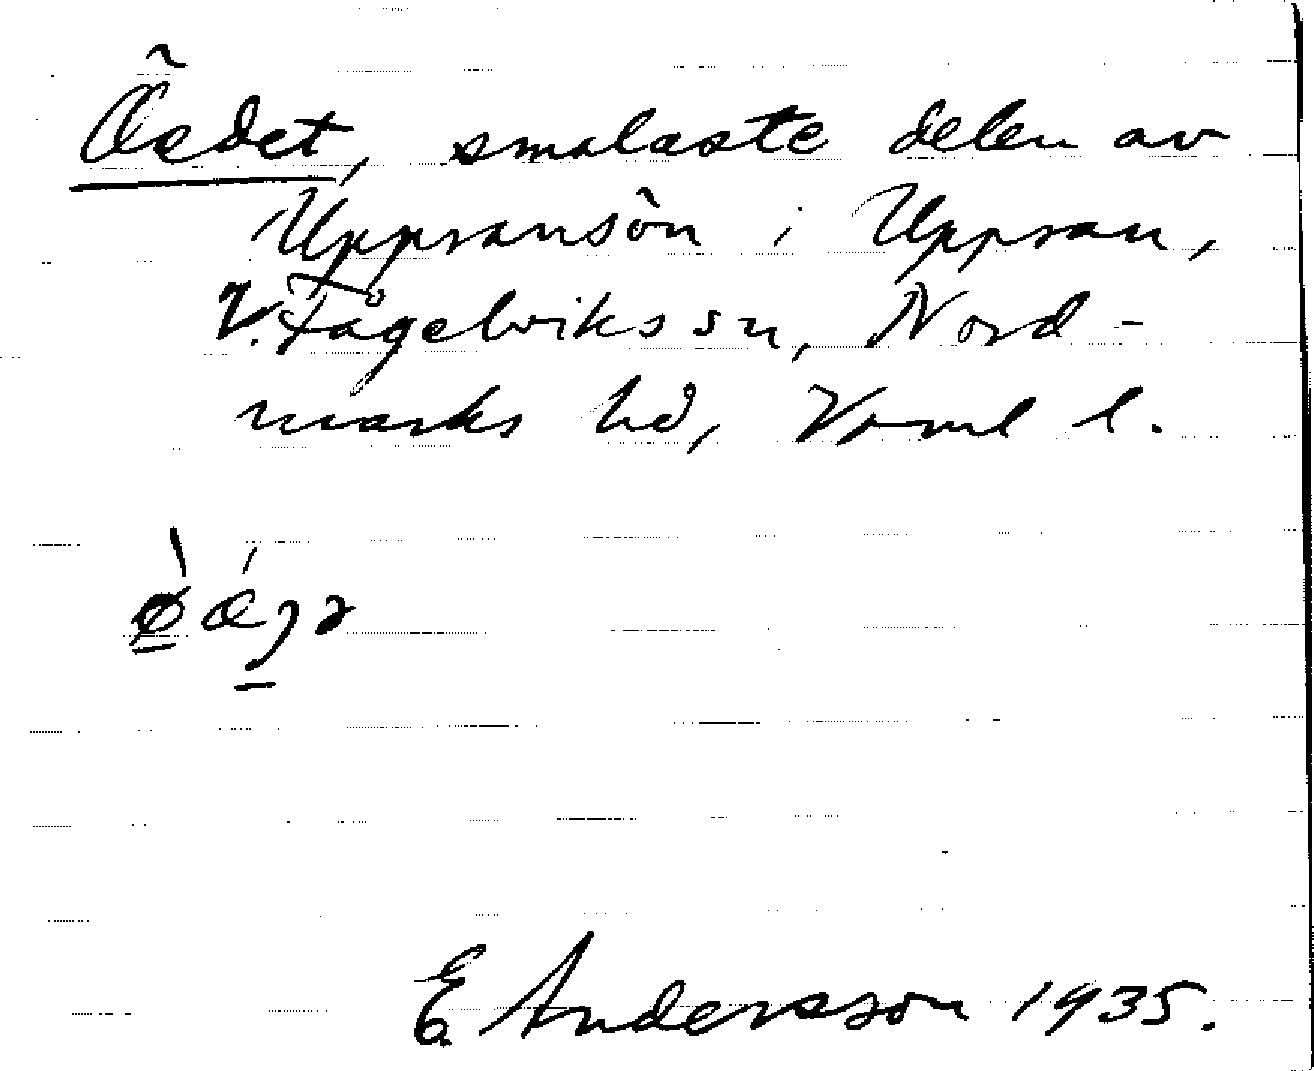 Öedet, smalaste delen av
Uppransön i Uppran,
V. Fågelvikssn, Nord-
marks hd, Vrml l.
E. Andersson 1935.